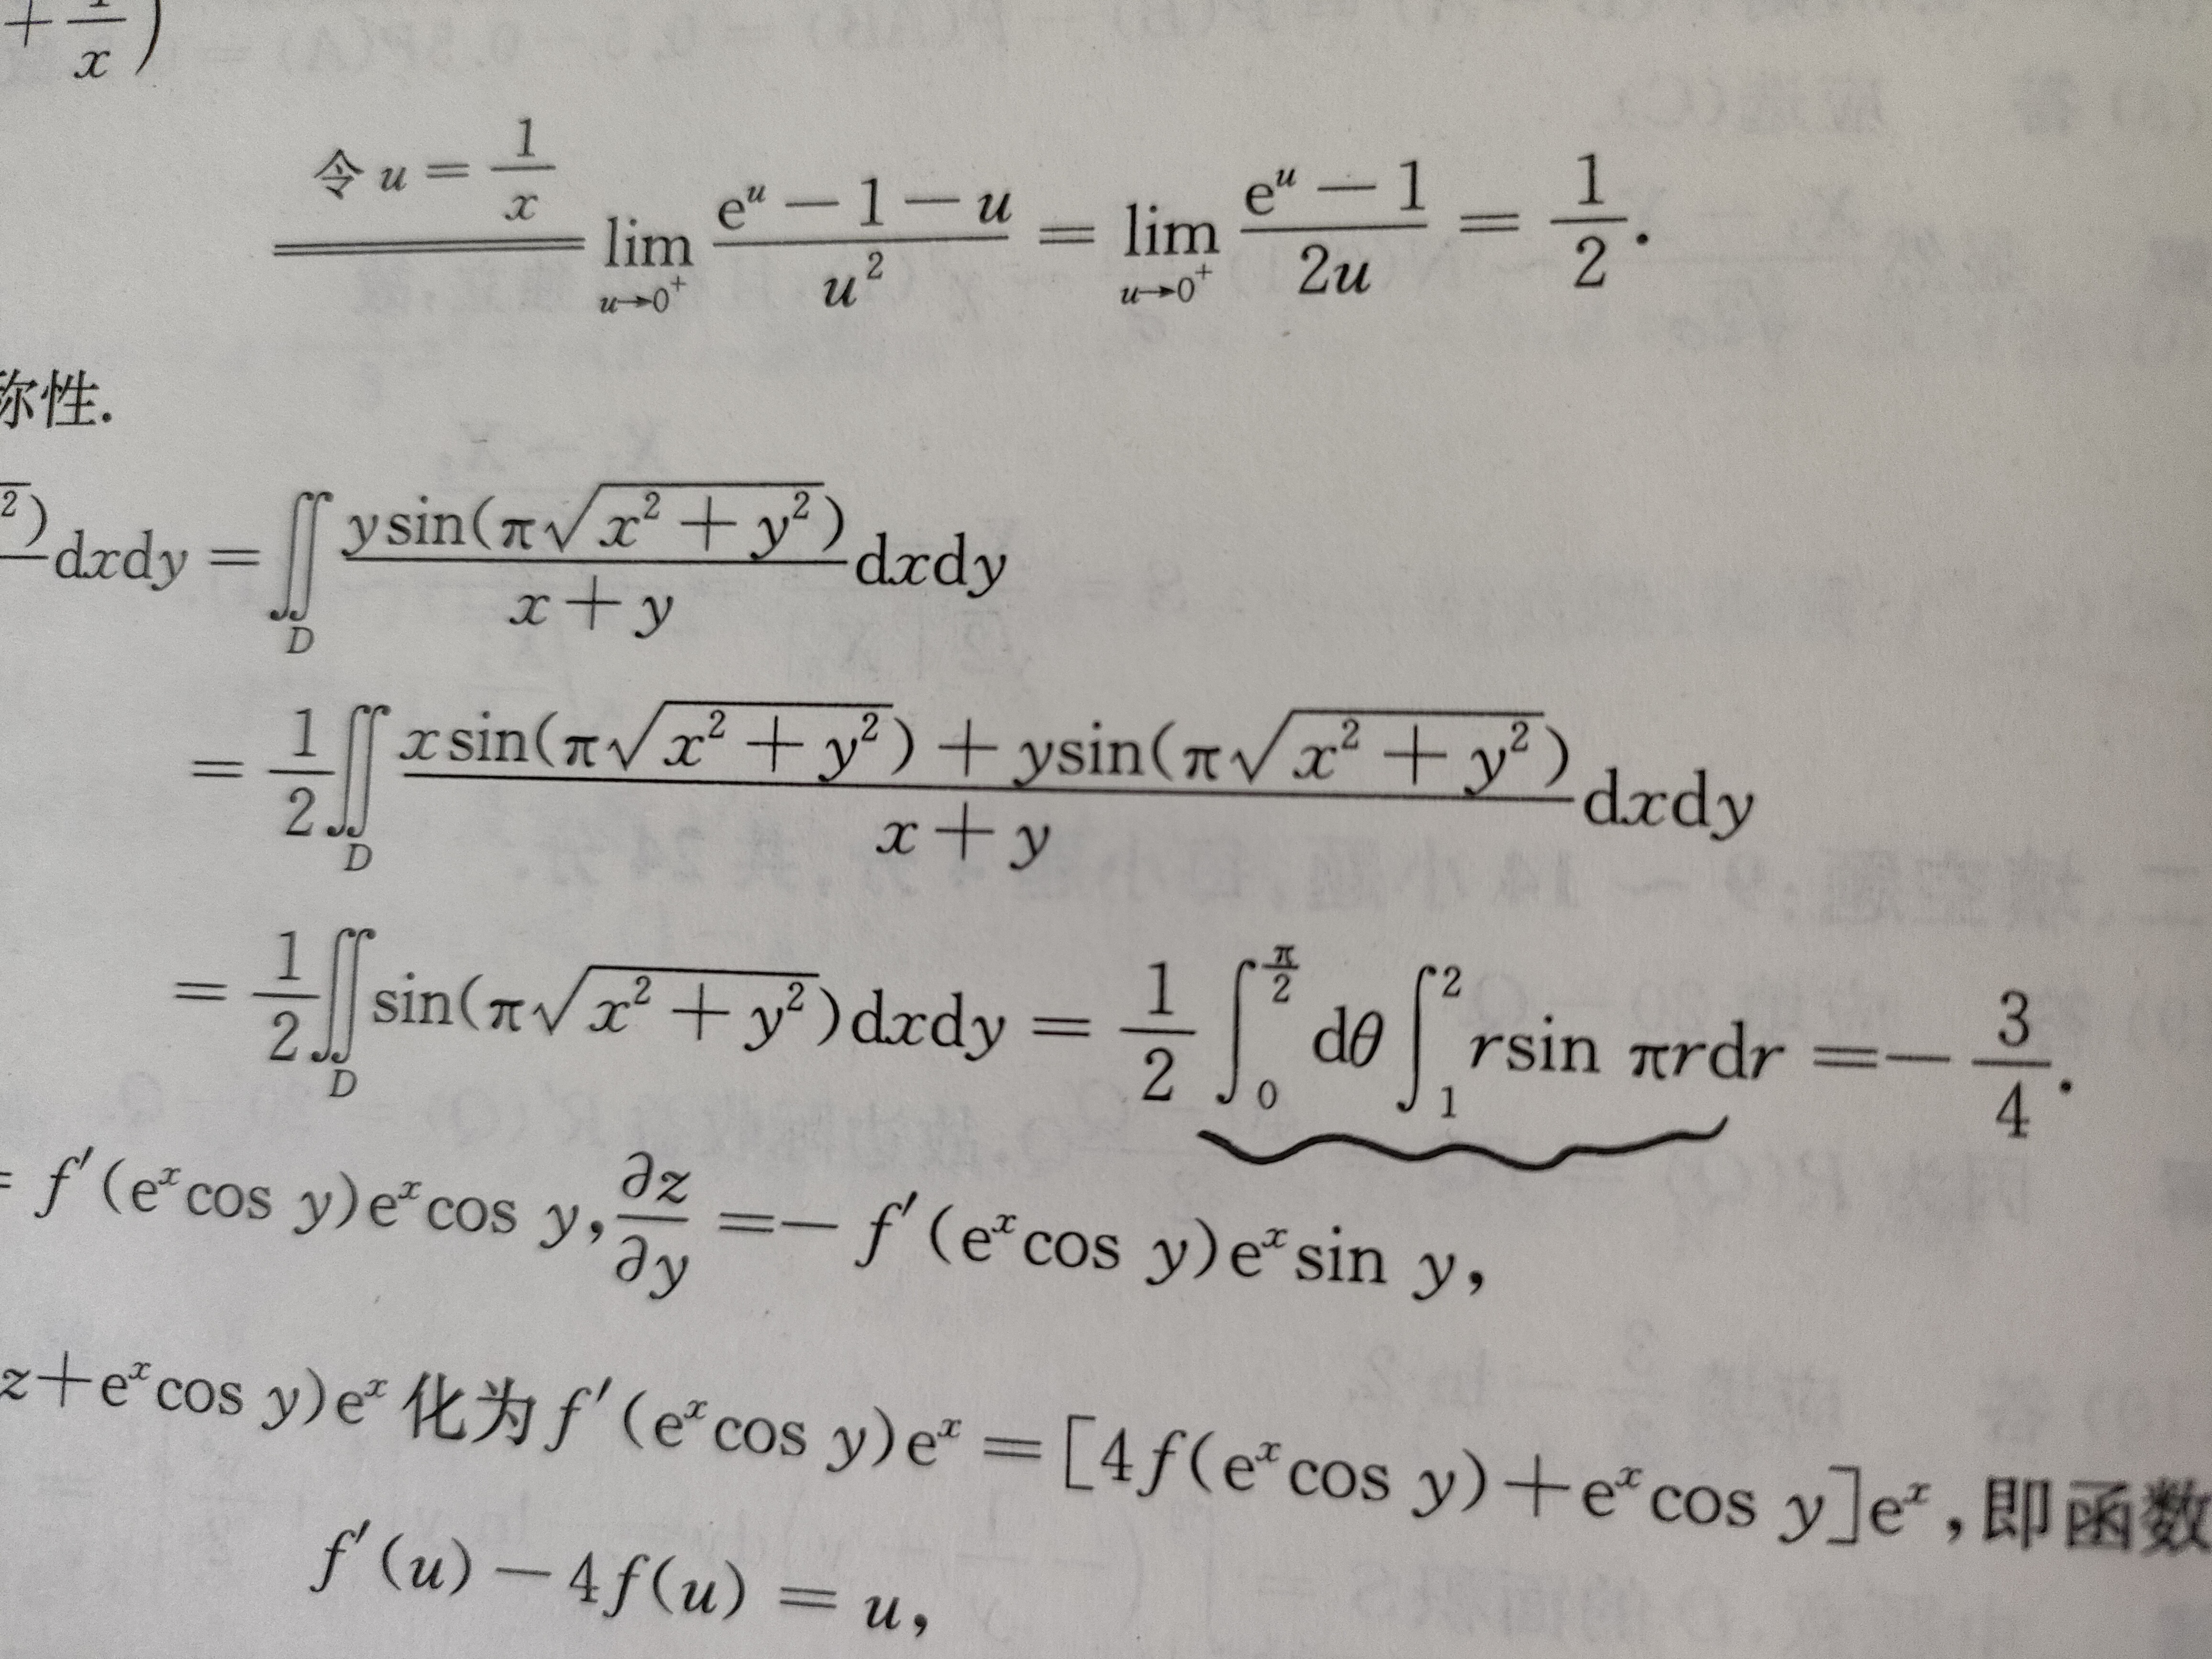 + 1/x )
令 u = 1/x lim u→0⁺ (eᵘ − 1 − u)/u² = lim u→0⁺ (eᵘ − 1)/2u = 1/2.
称性.
²) dxdy = ∬_D ysin(π√(x² + y²))/(x + y) dxdy
= 1/2 ∬_D (xsin(π√(x² + y²)) + ysin(π√(x² + y²)))/(x + y) dxdy
= 1/2 ∬_D sin(π√(x² + y²))dxdy = 1/2 ∫₀^(π/2) dθ ∫₁² rsin πrdr = − 3/4.
= f′(eˣcos y)eˣcos y, ∂z/∂y = − f′(eˣcos y)eˣsin y,
z + eˣcos y)eˣ 化为 f′(eˣcos y)eˣ = [4f(eˣcos y) + eˣcos y]eˣ, 即函数
f′(u) − 4f(u) = u,